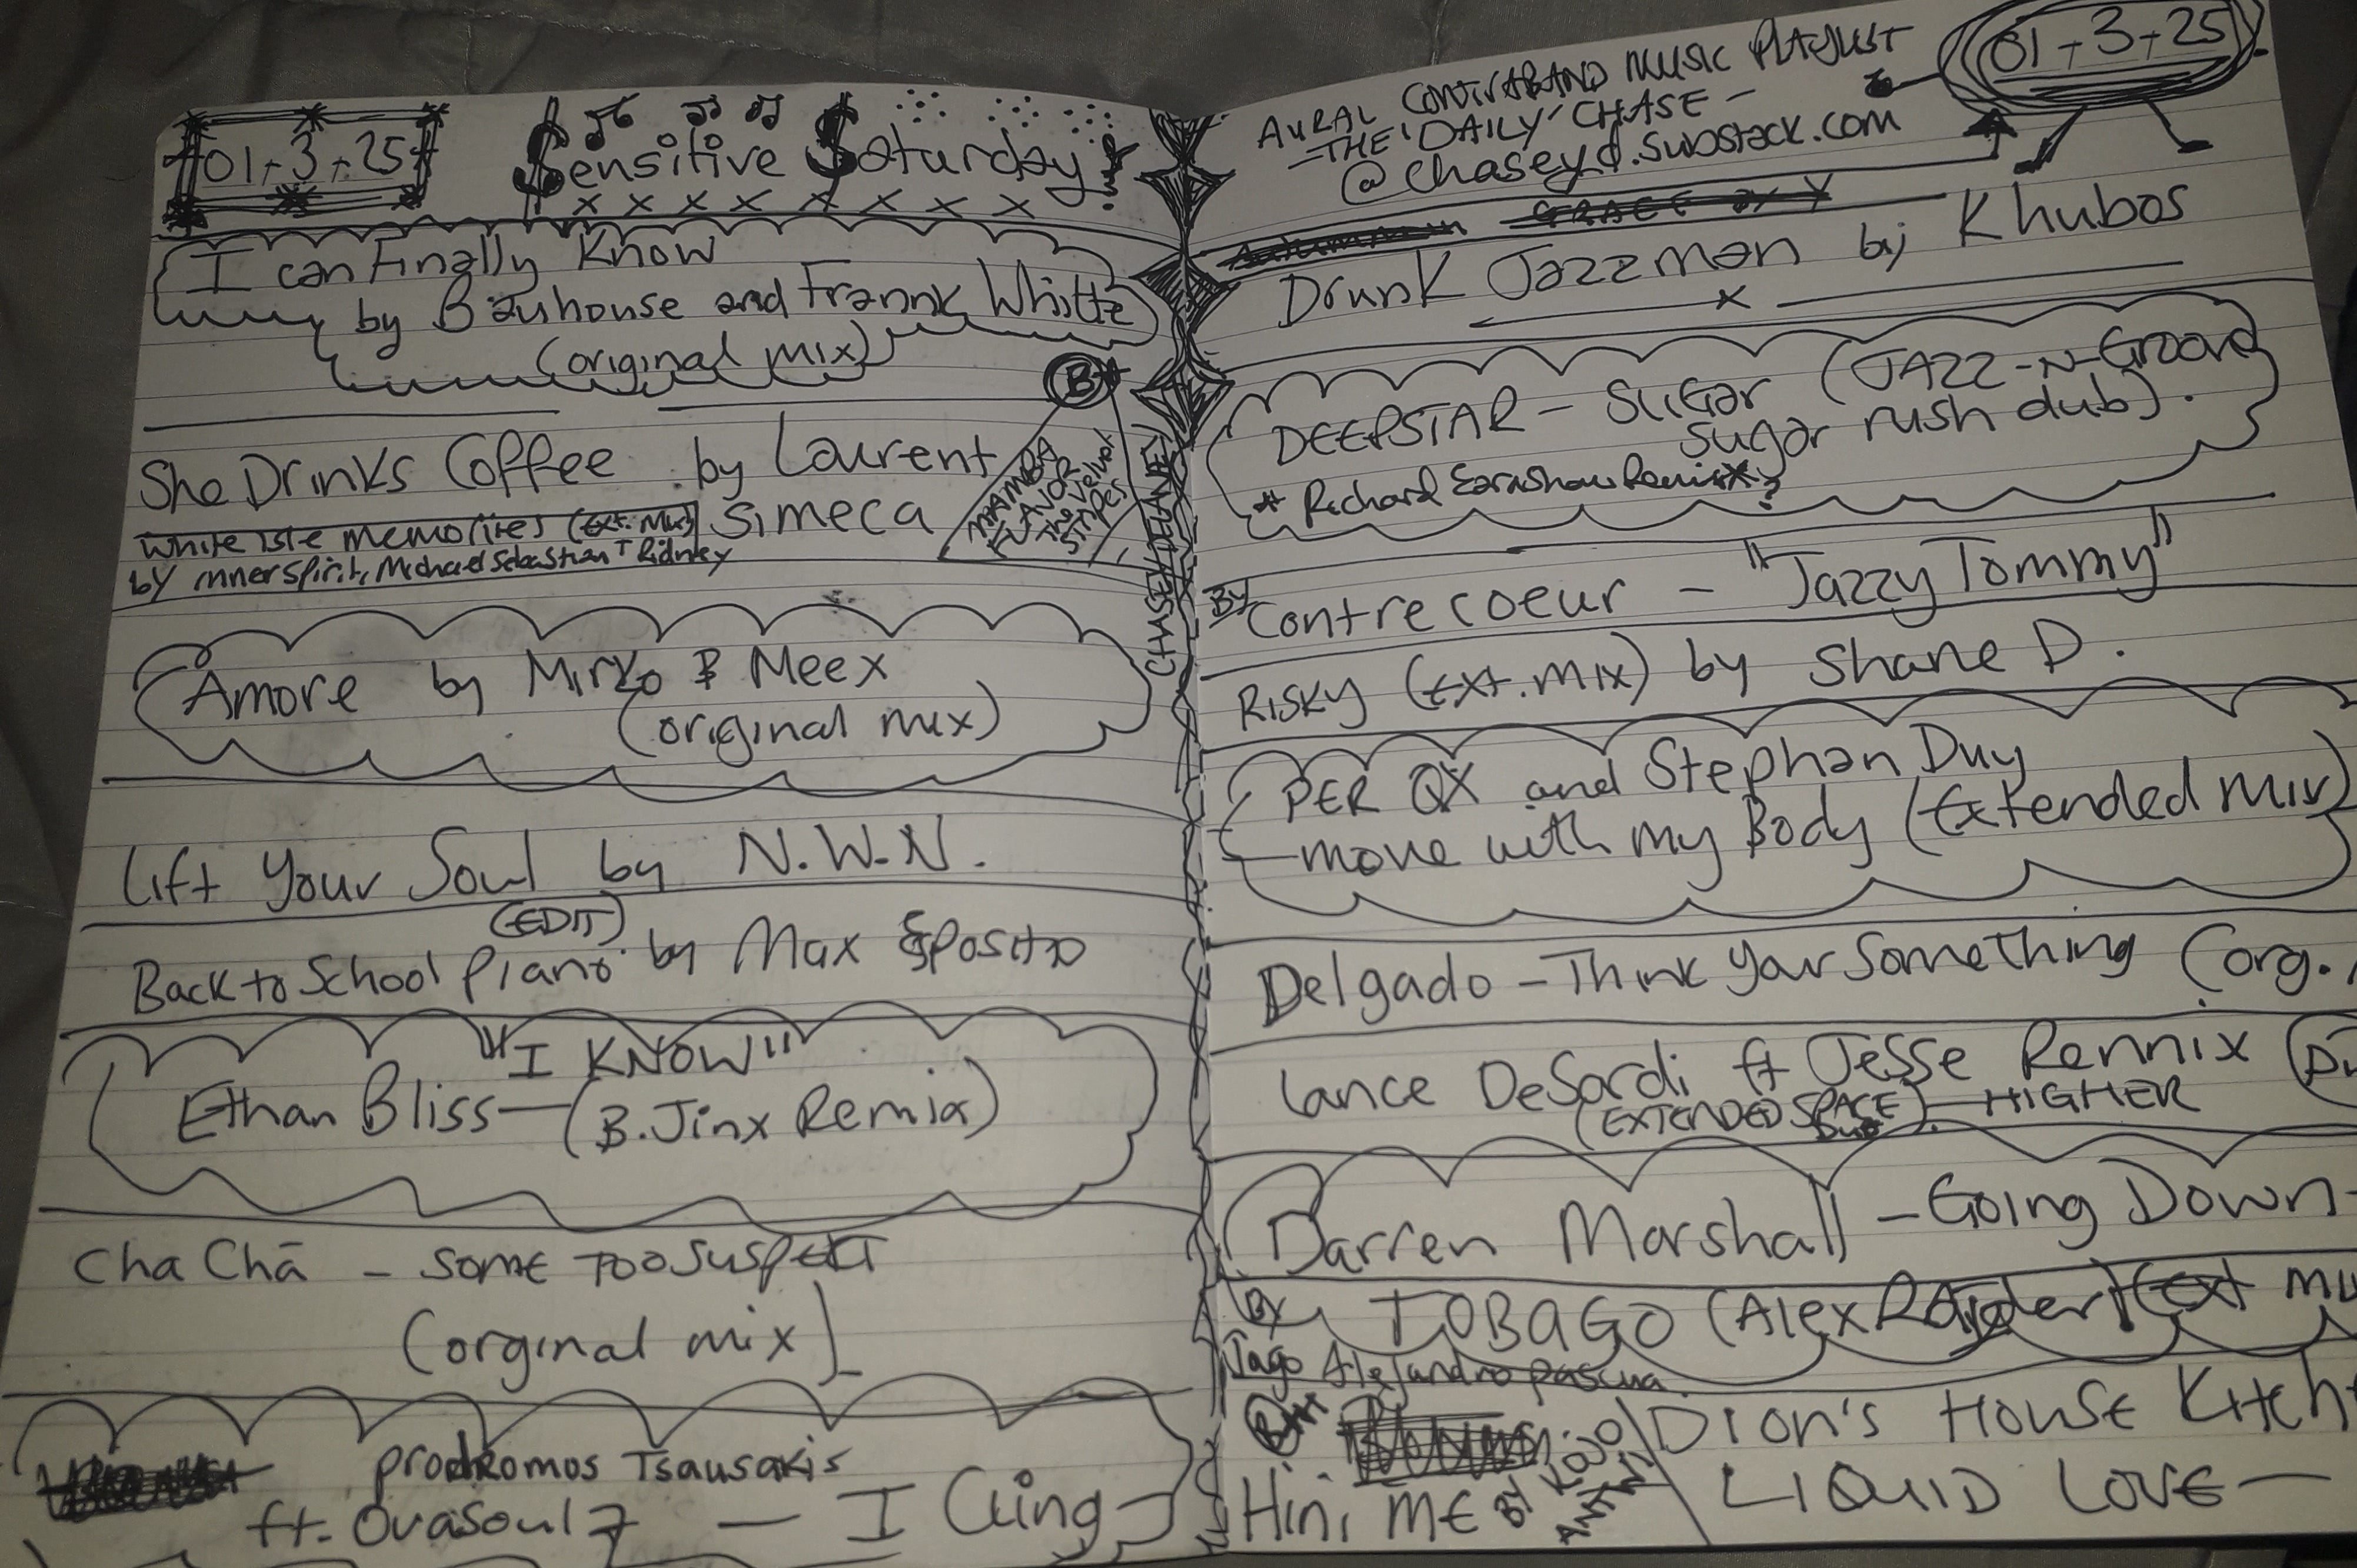 01+3+25
Sensitive Saturday!
x x x x x x x x x
I can Finally Know
by Bauhouse and Frannk Whitte
(original mix)
She Drinks Coffee by Laurent
Simeca
White Isle Memories (Ext. Mix)
by innerspirit, Michael Sebastian + Ridney
B
MAMBA
FLAVOR
The Velvet
Stripes
Amore by Mirko & Meex
(original mix)
Lift Your Soul by N.W.N.
(EDIT)
Back to School Piano by Max Esposito
"I KNOW"
Ethan Bliss — (B. Jinx Remix)
Cha Chā - some TOO SUSPECT
(orginal mix)
prodromos Tsausakis
ft. Ovasoul7 — I Cling
CHASEY DELANEY
01+3+25
AURAL CONTRABAND MUSIC PLAYLIST
-THE 'DAILY' CHASE-
@chaseyd.substack.com
Drunk Jazzman by Khubos
x
DEEPSTAR - Sugar (JAZZ-N-Groove
sugar rush dub).
* Richard Earnshaw Remix*?
By Contre coeur - "Jazzy Tommy"
Risky (Ext. mix) by Shane D.
PER QX and Stephan Duy
—move with my Body (Extended Mix)
Delgado - Think your something (org.
Lance DeSardi ft Jesse Rennix
(EXTENDED SPACE DUB) — HIGHER
Darren Marshall - Going Down -
By TOBAGO (Alex Raider) (ext
Iago Alejandro Pascua.
Hini ME BY KOJO
Dion's House
LIQUID LOVE —